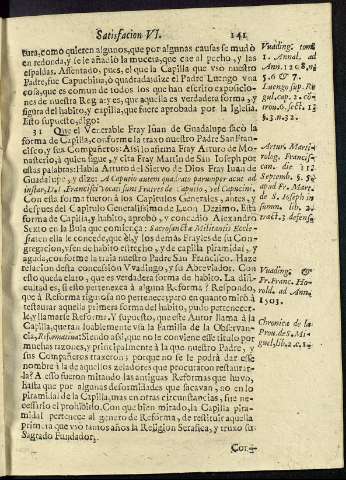 Satisfacion VI. 141
tura, como quieren algunos, que por algunas causas se mudò
en redonda, y se le añadiò la muceta, que cae al pecho, y las
espaldas. Assentado, pues, el que la Capilla que vsò nuestro
Padre, fue Capuchina, ò quadrada; dize el Padre Luengo vna
cosa, que es comun de todos los que han escrito exposicio-
nes de nuestra Regla: y es, que aquella es verdadera forma, y
figura del habito, y capilla, que fuere aprobada por la Iglesia.
Esto supuesto, digo:
31 Que el Venerable Fray Iuan de Guadalupe sacò la
forma de Capilla, conforme la traxo nuestro Padre San Fran-
cisco, y sus Compañeros: Assi lo afirma Fray Arturo de Mo-
nasterio, à quien sigue, y cita Fray Martin de San Ioseph por
estas palabras: Habla Arturo del Siervo de Dios Fray Iuan de
Guadalupe, y dize: Caputio autem quadrato parumper acuto ad
instar, Div. Francisci vocati sunt Fratres de Caputio, vel Capucini.
Con esta forma fueron à los Capitulos Generales, antes, y
despues del Capitulo Generalissimo de Leon Dezimo. Esta
forma de Capilla, y habito, aprobò, y concediò Alexandro
Sexto en la Bula que comiença: Sacrosanctæ Militantis Eccle-
siæ; en ella le concede, que èl, y los demàs Frayles de su Con-
gregacion, vsen de habito estrecho, y de capilla piramidal, y
aguda, conforme la traìa nuestro Padre San Francisco. Haze
relacion desta concession Vvadingo, y su Abreviador. Con
esto queda claro, que es verdadera forma de habito. La difi-
cultad es, si esto pertenezca à alguna Reforma? Respondo,
que à Reforma rigurosa no pertenece; pero en quanto mirò à
restaurar aquella primera forma del habito, pudo pertenecer-
le, y llamarse Reforma. Y supuesto, que este Autor llama à la
Capilla, que tan loablemente vsa la Familia de la Observan-
cia, Reformation: Siendo assi, que no le conviene este titulo por
muchas razones, y principalmente à la que nuestro Padre, y
sus Compañeros traxeron; porque no se le podrà dar esse
nombre à la de aquellos zeladores que procuraron restaurar-
la? A esso fueron mirando las antiguas Reformas que huvo,
hasta que por algunas deformidades que sacavan, no en lo
piramidal de la Capilla, mas en otras circunstancias, fue ne-
cessario el prohibirlo. Con que bien mirado, la Capilla pira-
midal pertenece al genero de Reforma, de restituìr aquella
primera que vsò tantos años la Religion Serafica, y truxo su
Sagrado Fundador.
Vvading. tom.
1. Annal. ad
Ann. 1208. nu.
5. 6. & 7.
Luengo sup. Re
gul. cap. 2. cõ-
tron. 6. sect. 13
§. 3. n. 32.
Artur. Marti-
rolog. Francis-
can. die 15
Septemb. §. 5.
ap. ad Fr. Mart.
de S. Ioseph in
summ. lib. 2.
tract. 3. defens.
Vvading. &
Fr. Franc. Ha-
rold. ad Ann.
1503.
Chronica de la
Prou. de S. Mi-
guel, lib. 2. c. 1.